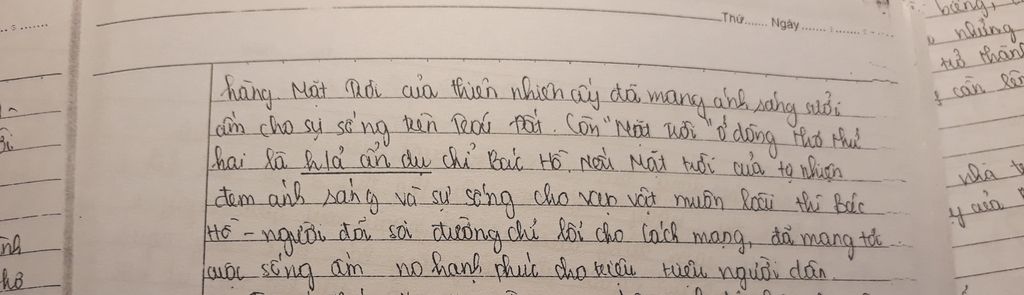 Thứ....... Ngày....... / ....... .......
hằng. Mặt Trời của thiên nhiên ấy đã mang ánh sáng sưởi
ấm cho sự sống trên Trái Đất. Còn "Mặt trời" ở dòng thơ thứ
hai là h/ả ẩn dụ chỉ Bác Hồ. Nếu Mặt trời của tự nhiên
đem ánh sáng và sự sống cho vạn vật muôn loài thì Bác
Hồ - người đã soi đường chỉ lối cho Cách mạng, đã mang tới
cuộc sống ấm no hạnh phúc cho triệu triệu người dân
bằng,
những
trở thành
cần
nhà
của